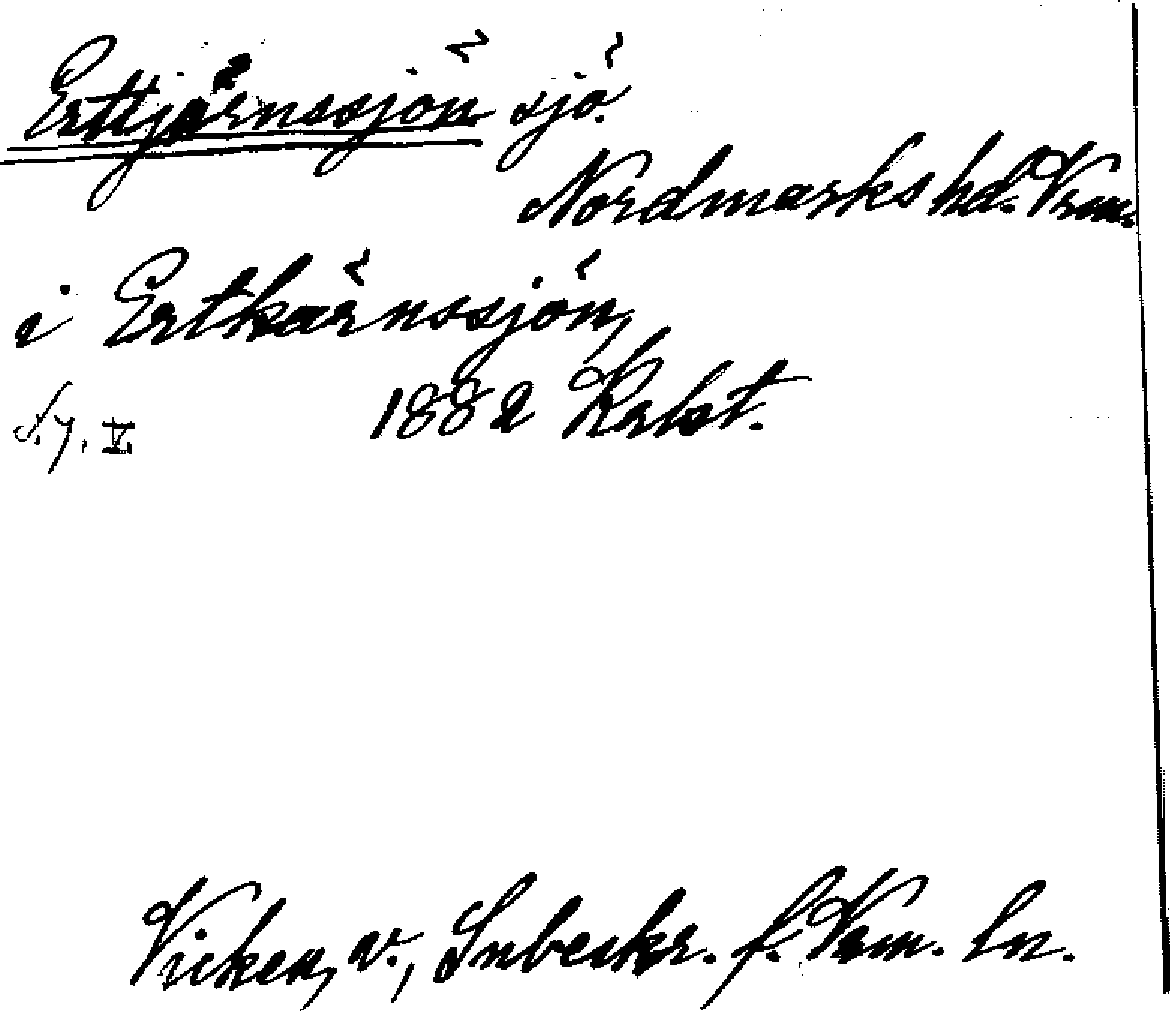 Erttjärnssjön sjö.
Nordmarks hd. Vrm.
i Ertkärnssjön,
1882 Krbst.
Vicken, v., Snbeskr. f. Vrm. Ln.